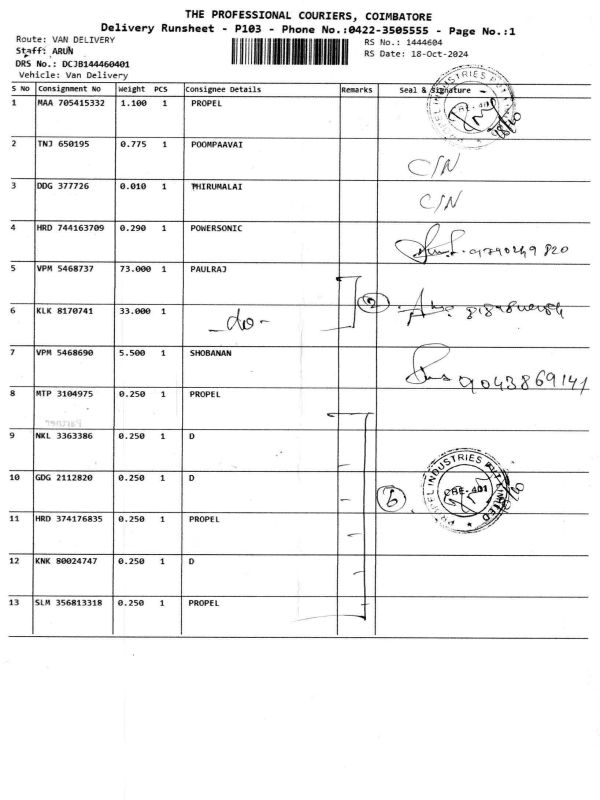 THE PROFESSIONAL COURIERS, COIMBATORE
Delivery Runsheet - P103 - Phone No.:0422-3505555 - Page No.:1
Route: VAN DELIVERY
RS No.: 1444604
Staff: ARUN
RS Date: 18-Oct-2024
DRS No.: DCJB144460401
Vehicle: Van Delivery
S No Consignment No Weight PCS Consignee Details Remarks Seal & Signature
1 MAA 705415332 1.100 1 PROPEL
2 TNJ 650195 0.775 1 POOMPAAVAI C/N
3 DDG 377726 0.010 1 THIRUMALAI C/N
4 HRD 744163709 0.290 1 POWERSONIC 9790249820
5 VPM 5468737 73.000 1 PAULRAJ
6 KLK 8170741 33.000 1 -do- 2
7 VPM 5468690 5.500 1 SHOBANAN 9043869141
8 MTP 3104975 0.250 1 PROPEL
9 NKL 3363386 0.250 1 D
10 GDG 2112820 0.250 1 D PROPEL INDUSTRIES PVT LIMITED CBE-401
11 HRD 374176835 0.250 1 PROPEL
12 KNK 80024747 0.250 1 D
13 SLM 356813318 0.250 1 PROPEL